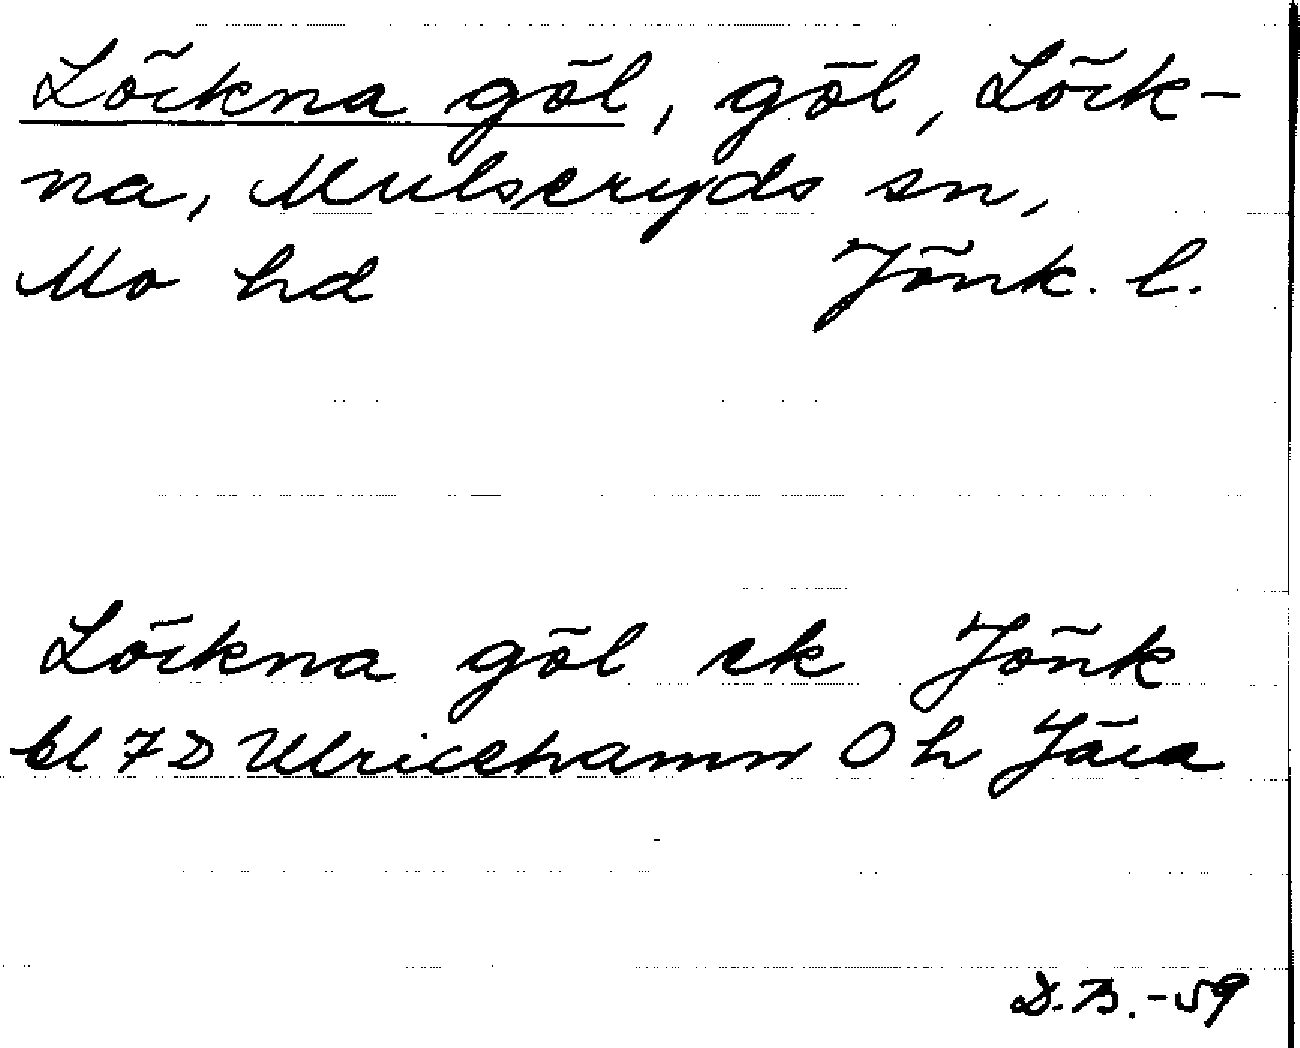 Löckna göl, göl, Löck-
na, Mulseryds sn,
Mo hd Jönk. l.
Löckna göl ek Jönk
bl 7D Ulricehamn O h
D.B. -59